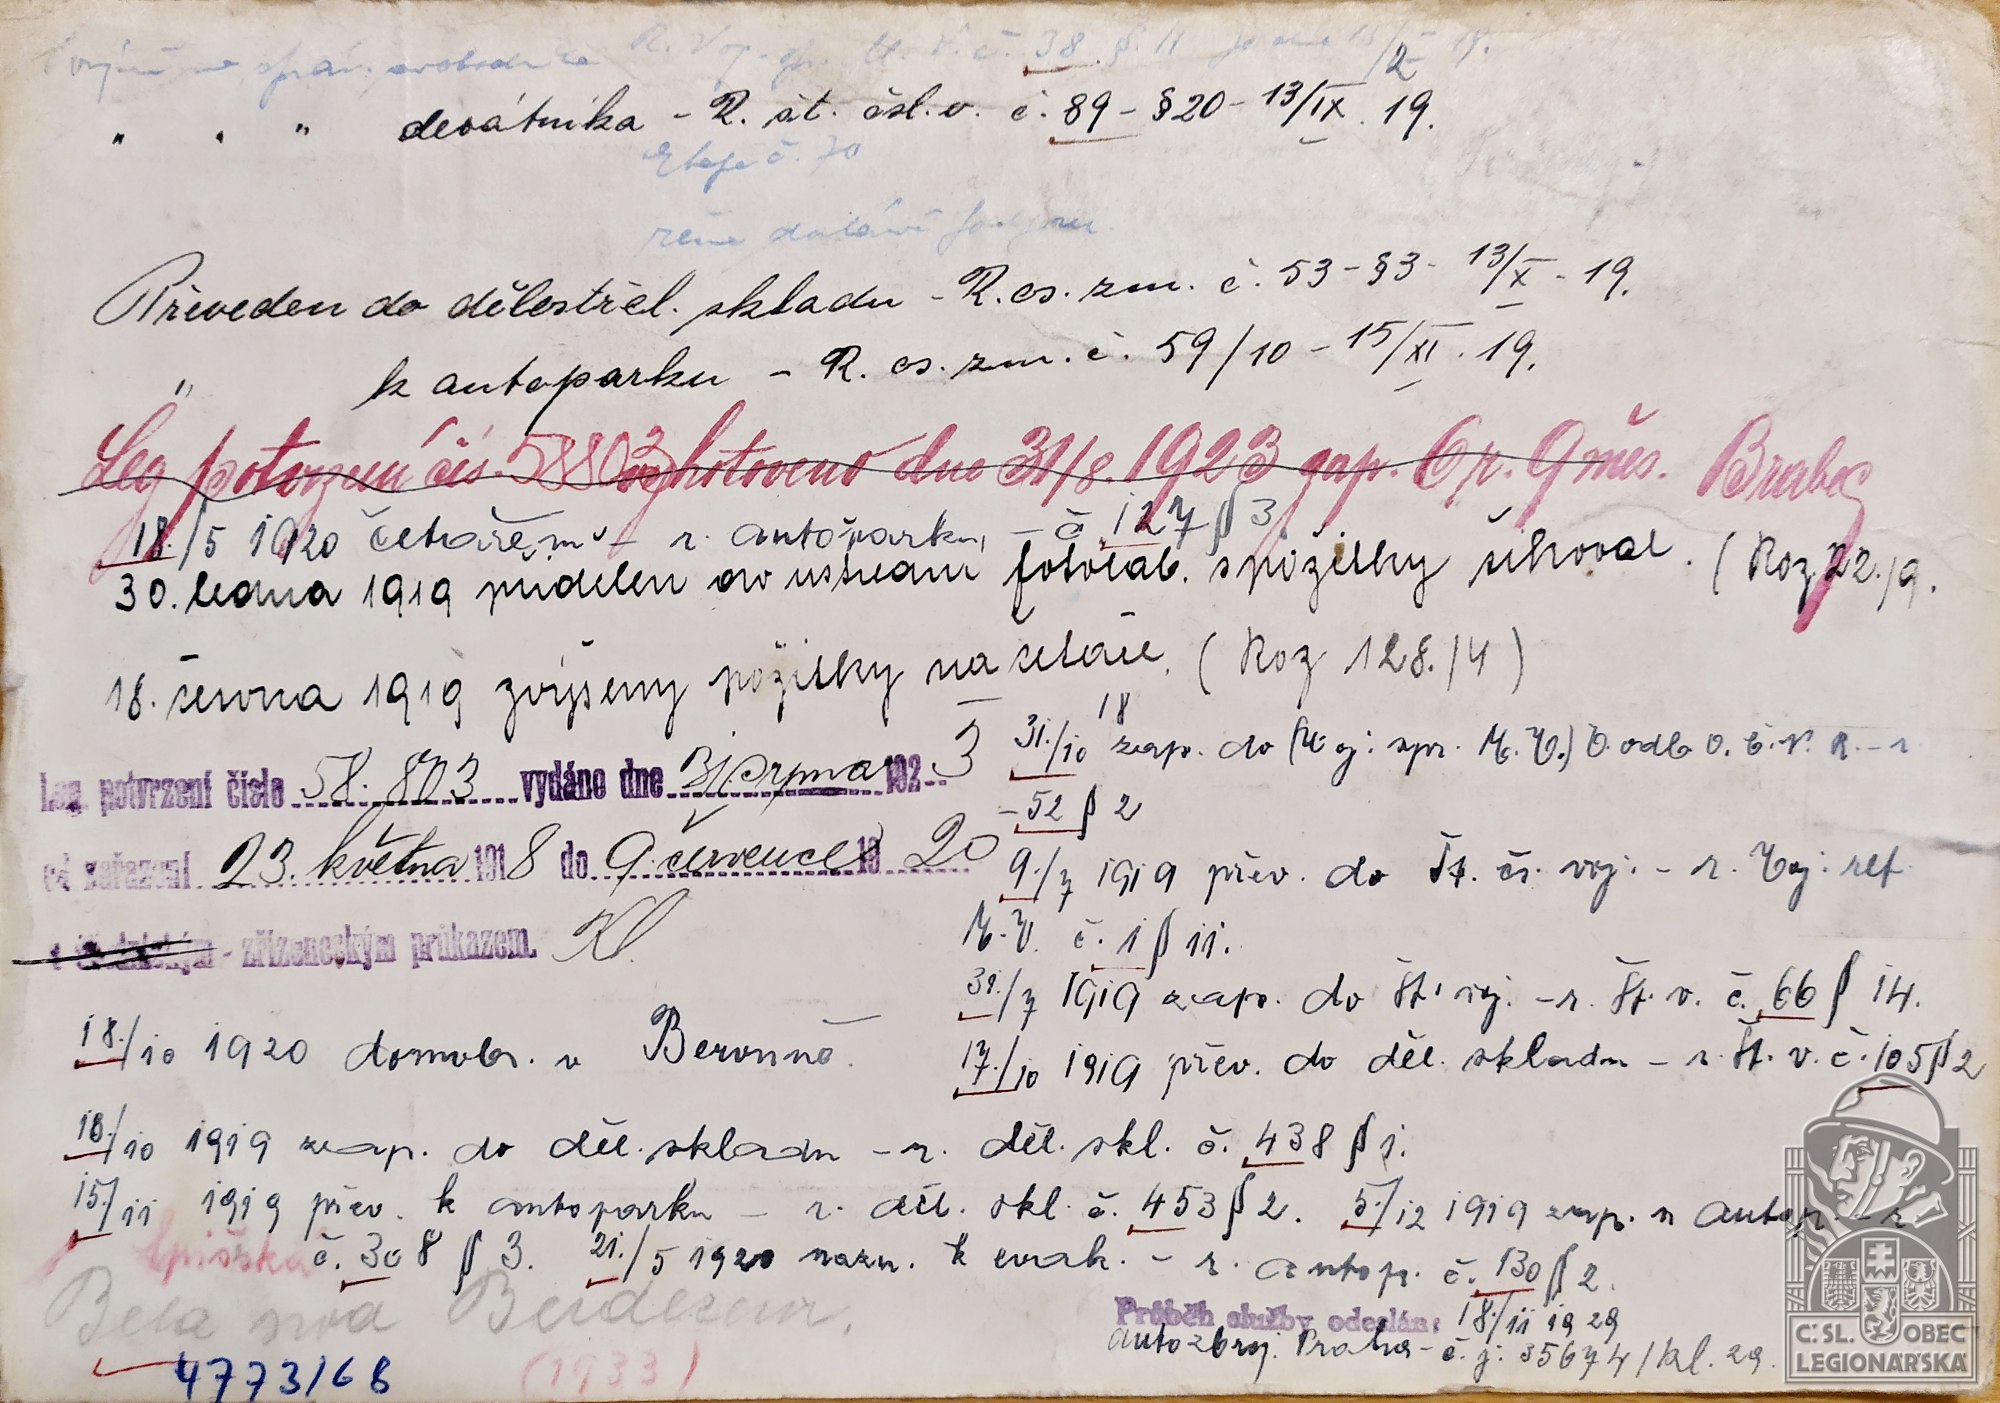 č. 38 § 11
" " " desátníka - R. št. čsl. v. č. 89 - §20 - 13/IX. 19.
Etapa č. 70
Převeden do dělostřel. skladu - R. cs. zm. č. 53 - §3 - 13/X - 19.
" k autoparku - R. cs. zm. č. 59/10 - 15/XI. 19.
Leg potvrzení čís. 58803 vyhotoveno dne 31/8. 1923 zap. 6 r. 9 měs. Brabec
18./5 1920 četařem - r. autoparku - č. 127 § 3
30. ledna 1919 přidělen do ústřední fotolab. s požitky šikovat. (Roz 22./9.
18. června 1919 zvýšeny požitky na četaře. (Roz 128./4)
Leg. potvrzení číslo 58.803 vydáno dne 31 srpna 1923
od zařazení 23. května 1918 do 9. července 1920
s úřednickým - zřízeneckým průkazem. Kl.
31./10 18 zap. do (Voj. spr. M. V.) odb. O. č. N. R. - r.
- 52 § 2
9./7 1919 přev. do Št. čs. voj. - r. Voj. ref.
M. V. č. 1 § 11.
31./7 1919 zap. do št. voj. - r. Št. v. č. 66 § 14.
17./10 1919 přev. do děl. skladu - r. Št. v. č. 105 § 2
18./10 1920 domobr. v Berouně.
18./10 1919 zap. do děl. skladu - r. děl. skl. č. 438 § 1.
15./11 1919 přev. k autoparku - r. děl. skl. č. 453 § 2. 5./12 1919 zap. u autop. - r.
č. 308 § 3. 21./5 1920 nazn. k evak. - r. autop. č. 130 § 2.
Spišská
Bela pod Bezdezem.
4773/68
(1933)
Průběh služby odeslán: 18/11 1929
autozbroj. Praha - č. j. 35674/kl. 29.
Č. SL. OBEC
LEGIONÁŘSKÁ